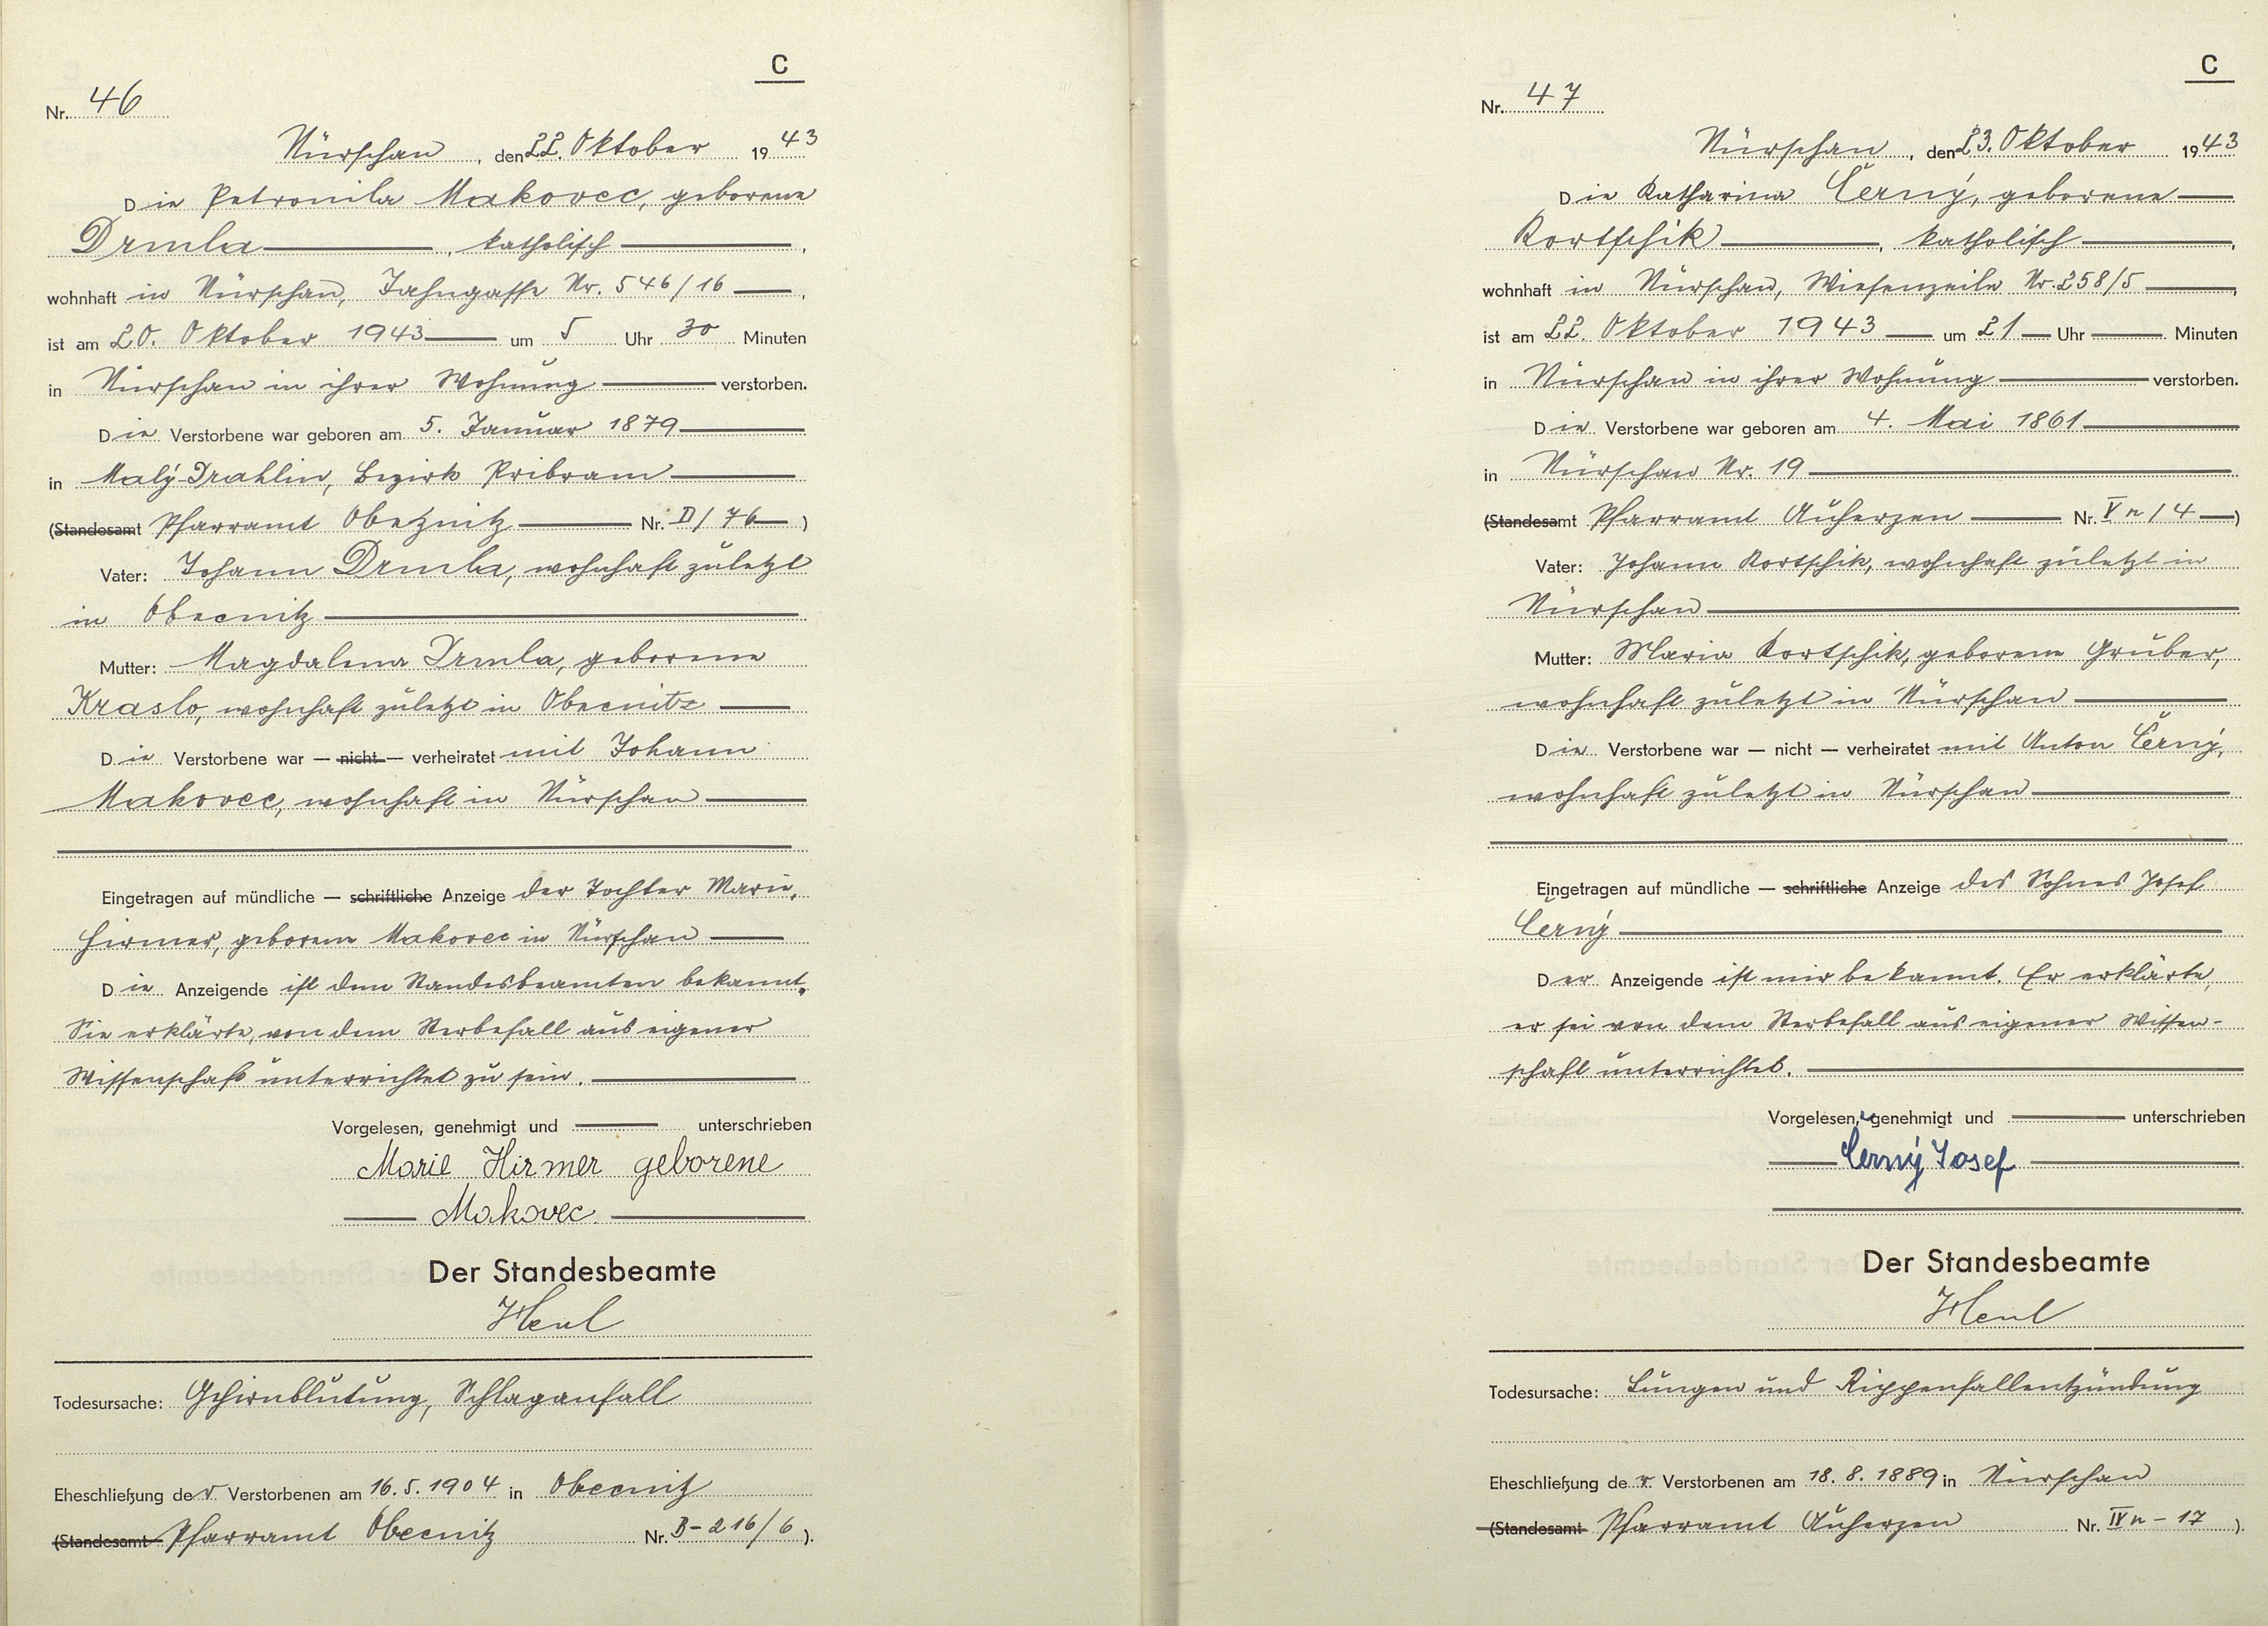 C
Nr. 46
Nürschan, den 22. Oktober 1943
Die Petronila Makovec, geborene
Drmla, katholisch,
wohnhaft in Nürschan, Jahngasse Nr. 546/16,
ist am 20. Oktober 1943 um 5 Uhr 30 Minuten
in Nürschan in ihrer Wohnung verstorben.
Die Verstorbene war geboren am 5. Januar 1879
in Malý-Drahlin, Bezirk Pribram
(Standesamt Pfarramt Obetznitz Nr. D/76)
Vater: Johann Drmla, wohnhaft zuletzt
in Obecnitz
Mutter: Magdalena Drmla, geborene
Kraslo, wohnhaft zuletzt in Obecnitz
Die Verstorbene war — nicht — verheiratet mit Johann
Makovec, wohnhaft in Nürschan
Eingetragen auf mündliche — schriftliche Anzeige der Tochter Marie,
Hirmer, geborene Makovec in Nürschan
Die Anzeigende ist dem Standesbeamten bekannt,
Sie erklärte, von dem Sterbefall aus eigener
Wissenschaft unterrichtet zu sein.
Vorgelesen, genehmigt und unterschrieben
Marie Hirmer geborene
Makovec.
Der Standesbeamte
Todesursache: Gehirnblutung, Schlaganfall
Eheschließung der Verstorbenen am 16.5.1904 in Obecnitz
(Standesamt Pfarramt Obecnitz Nr. B-216/6).
C
Nr. 47
Nürschan, den 23. Oktober 1943
Die Katharina Černý, geborene
Kortschik, katholisch,
wohnhaft in Nürschan, Wiesenzeile Nr. 258/5,
ist am 22. Oktober 1943 um 21 Uhr Minuten
in Nürschan in ihrer Wohnung verstorben.
Die Verstorbene war geboren am 4. Mai 1861
in Nürschan Nr. 19
(Standesamt Pfarramt Auherzen Nr. V n/4)
Vater: Johann Kortschik, wohnhaft zuletzt in
Nürschan
Mutter: Maria Kortschik, geborene Gruber,
wohnhaft zuletzt in Nürschan
Die Verstorbene war — nicht — verheiratet mit Anton Černý,
wohnhaft zuletzt in Nürschan
Eingetragen auf mündliche — schriftliche Anzeige des Sohnes Josef
Černý
Der Anzeigende ist mir bekannt. Er erklärte,
er sei von dem Sterbefall aus eigener Wissen-
schaft unterrichtet.
Vorgelesen, genehmigt und unterschrieben
Černý Josef
Der Standesbeamte
Todesursache: Lungen und Rippenfallentzündung
Eheschließung der Verstorbenen am 18.8.1889 in Nürschan
(Standesamt Pfarramt Auherzen Nr. IV n - 17).